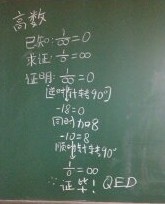 高数
已知:1/∞=0
求证:1/0=∞
证明:1/∞=0
逆时针转90°
-18=0
同时加8
-10=8
顺时针转90°
1/0=∞
∴证毕!QED